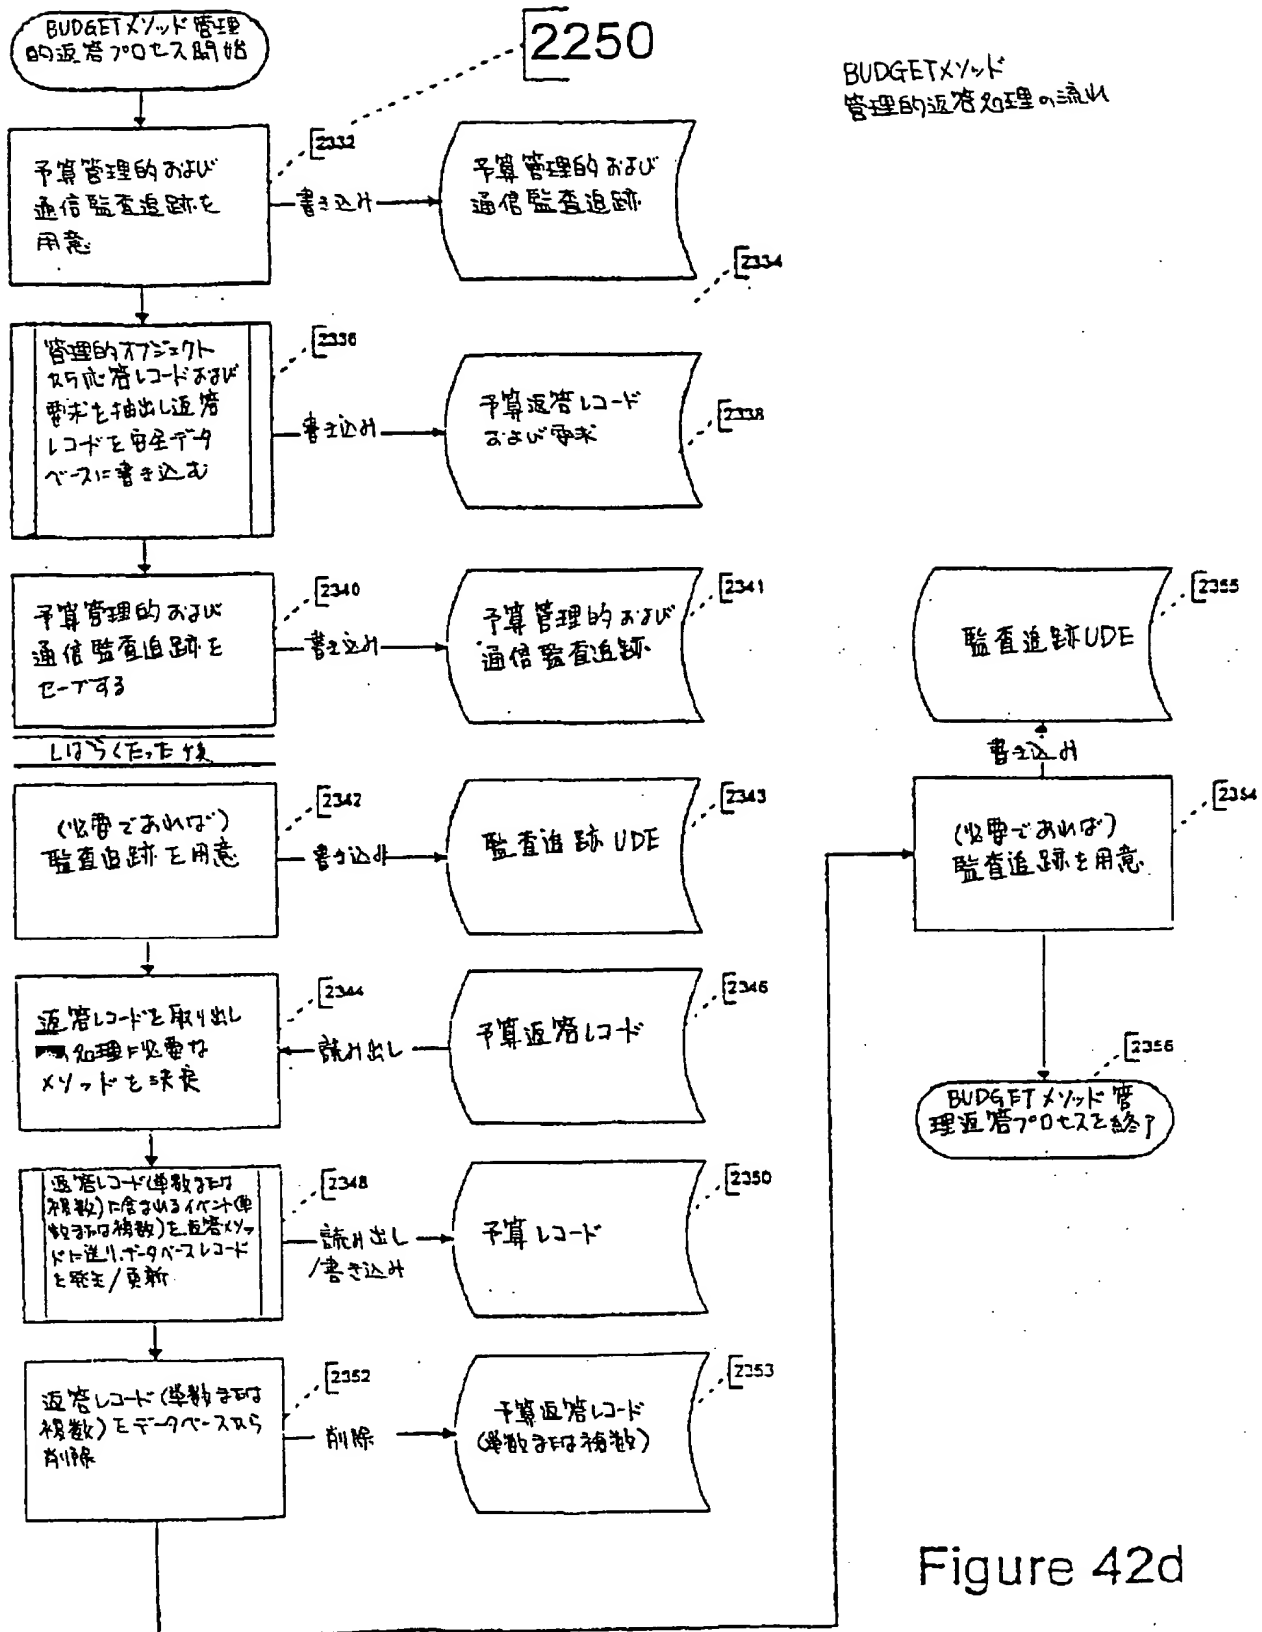 BUDGETメソッド管理
的返答プロセス開始
2250
BUDGETメソッド
管理的返答処理の流れ
予算管理的および
通信監査追跡を
用意
2332
書き込み
予算管理的および
通信監査追跡
2334
管理的オブジェクト
から応答レコードおよび
要求を抽出し返答
レコードを安全データ
ベースに書き込む
2336
書き込み
予算返答レコード
および要求
2338
予算管理的および
通信監査追跡を
セーブする
2340
書き込み
予算管理的および
通信監査追跡
2341
しばらくたった後
(必要であれば)
監査追跡を用意
2342
書き込み
監査追跡 UDE
2343
返答レコードを取り出し
処理に必要な
メソッドを決定
2344
読み出し
予算返答レコード
2346
返答レコード(単数または
複数)に含まれるイベント(単
数または複数)を返答メソッ
ドに送り、データベースレコード
を発生/更新
2348
読み出し
/書き込み
予算レコード
2350
返答レコード(単数または
複数)をデータベースから
削除
2352
削除
予算返答レコード
(単数または複数)
2353
監査追跡UDE
2355
書き込み
(必要であれば)
監査追跡を用意
2354
BUDGETメソッド管
理返答プロセスを終了
2356
Figure 42d